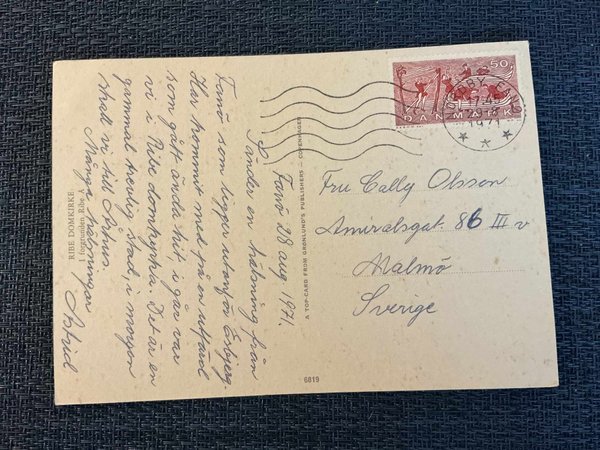 Fanö 28 aug 1971.
Sänder en hälsning från
Fanö som ligger utanför Esbjerg.
Har kommit med på en utfärd
som gått ända hit i går var
vi i Ribe domkyrka. Det är en
gammal trevlig stad, i morgon
skall vi till Århus.
Många hälsningar
Astrid
RIBE DOMKIRKE
I forgrunden Ribe Å
A TOP-CARD FROM GRØNLUND'S PUBLISHERS – COPENHAGEN
6819
50
DANMARK
1971
Fru Cally Olsson
Amiralsgat. 86 III v
Malmö
Sverige